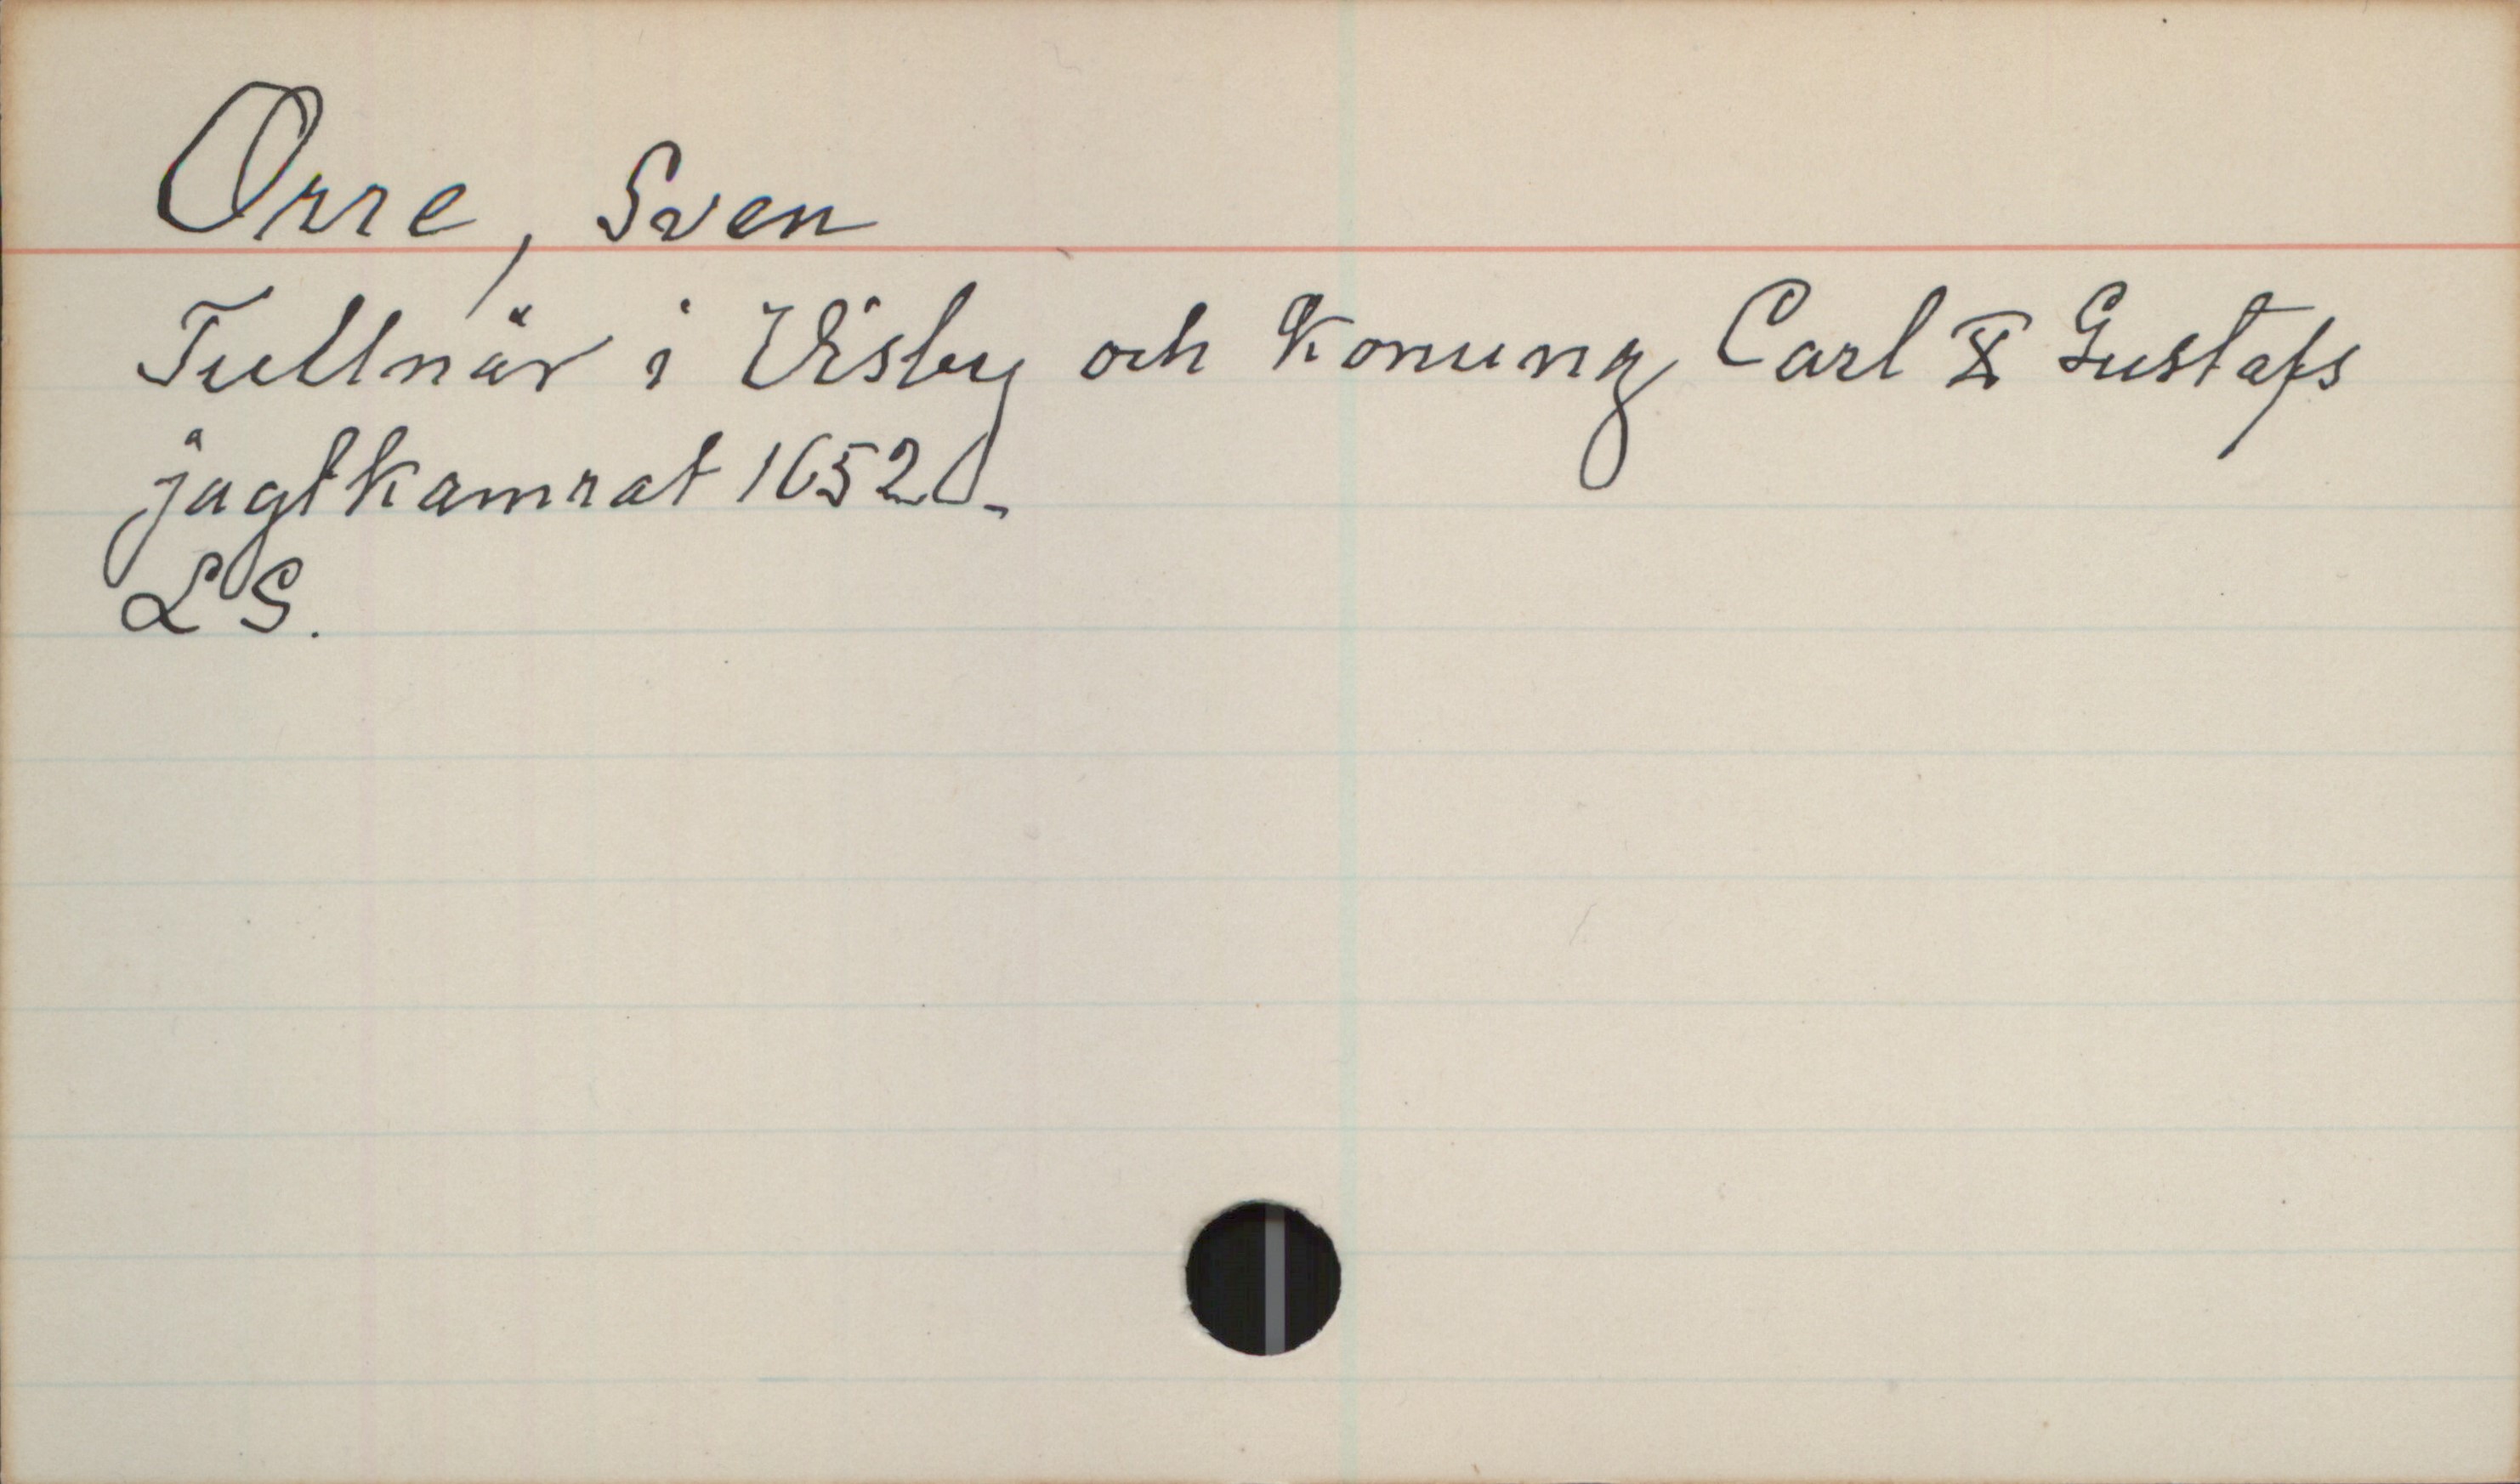 Orre, Sven
Tullnär i Visby och Konung Carl X Gustafs
jagtkamrat 1652.
LS.